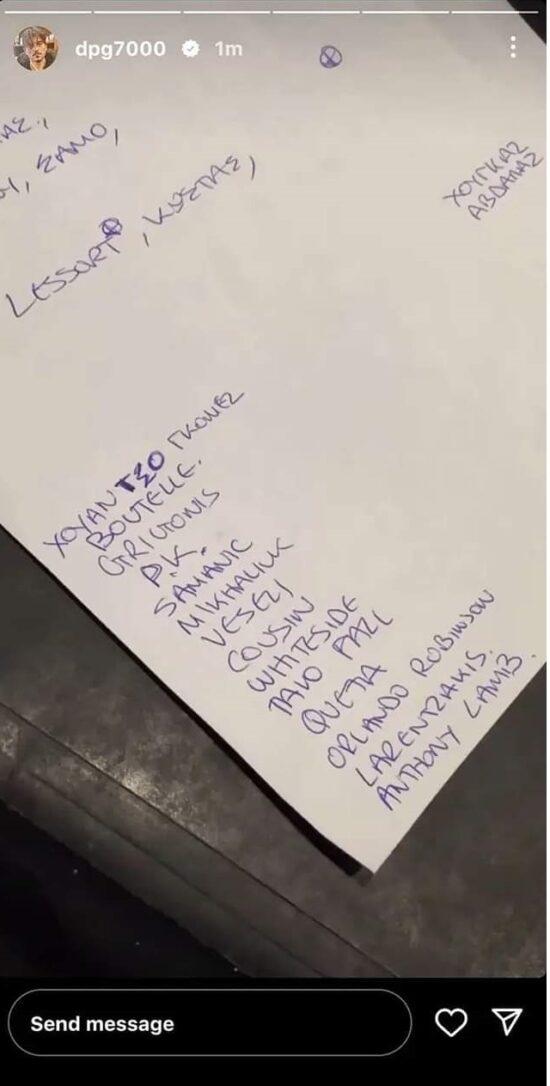 dpg7000 1m
ΑΣ,
, ΣΑΜΟ,
LESSORT, ΚΩΣΤΑΣ,
ΧΟΥΓΚΑΖ
ΑΒΔΑΛΑΣ
ΧΟΥΑΝ ΤΣΟ ΓΚΟΜΕΖ
BOUTELLE.
GRIGONIS
P.K.
SAMANIC
MIKHAILIUK
VESELI
COUSIN
WHITESIDE
QUETA
ORLANDO ROBINSON
LARENTZAKIS.
ANTHONY LAMB.
Send message